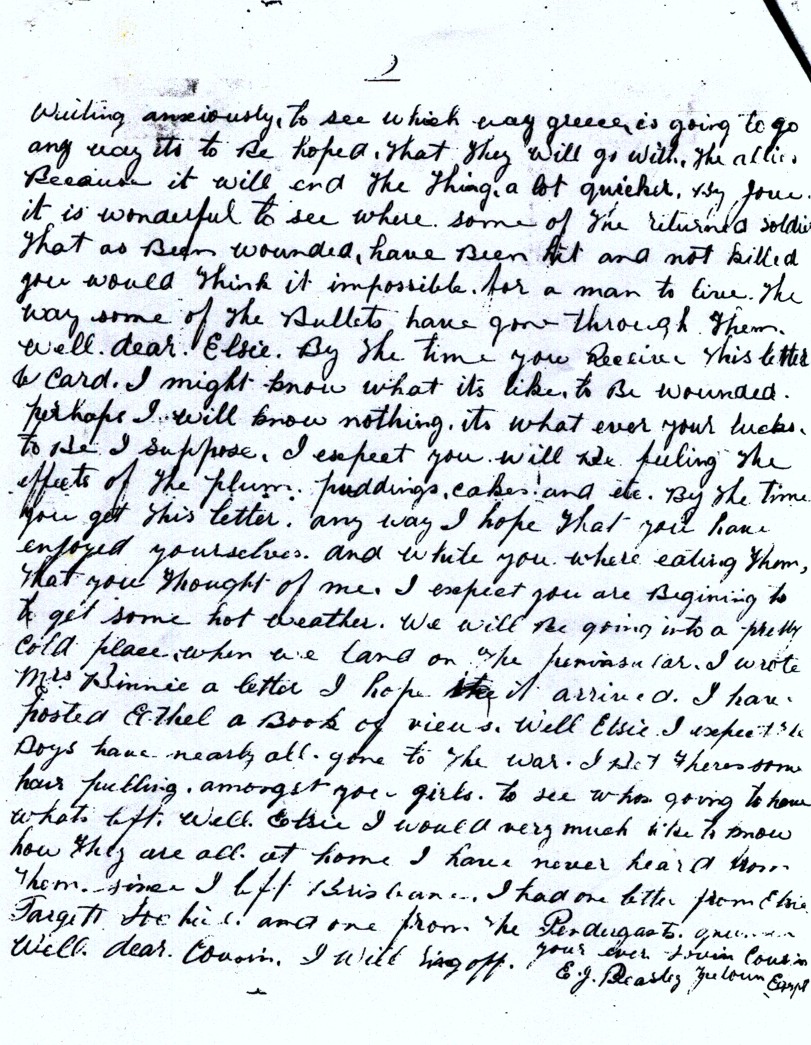 2
Waiting anxiously, to see which way greece, is going to go
any way its to Be hoped. That They will go with. The allies
Because it will end The Thing. a lot quicker. By Jove.
it is wonderful to see where some of The returned soldi
That as Been wounded, have Been hit and not killed
you would Think it impossible. for a man to live. The
way some of The Bullets have gone through Them.
Well. dear. Elsie. By The time you Receive This letter
& Card. I might know what its like. to Be wounded.
perhaps I will know nothing. its what ever your lucks.
to Be I suppose. I expect you will Be feeling The
effects of The plum. puddings, cakes! and etc. By The time
you get This letter. any way I hope That you have
enjoyed yourselves. and while you where eating Them,
That you Thought of me. I expect you are Begining to
to get some hot weather. We will Be going into a pretty
cold place, when we land on The peninsular. I wrote
Mrs Binnie a letter I hope it arrived. I have
posted Ethel a Book of views. Well Elsie I expect The
Boys have nearly all. gone to The war. I Bet Theres some
hair pulling. amongst you girls. to see whos going to have
whats left. Well. Elsie I would very much like to know
how They are all. at home I have never heard from
Them. since I left Brisbane. I had one letter from Elsie
Targett and one from The Pendergasts.
Well. dear. Cousin. I Will off. your ever Lovin Cousin
E. J. Beasley Zietoun Egypt